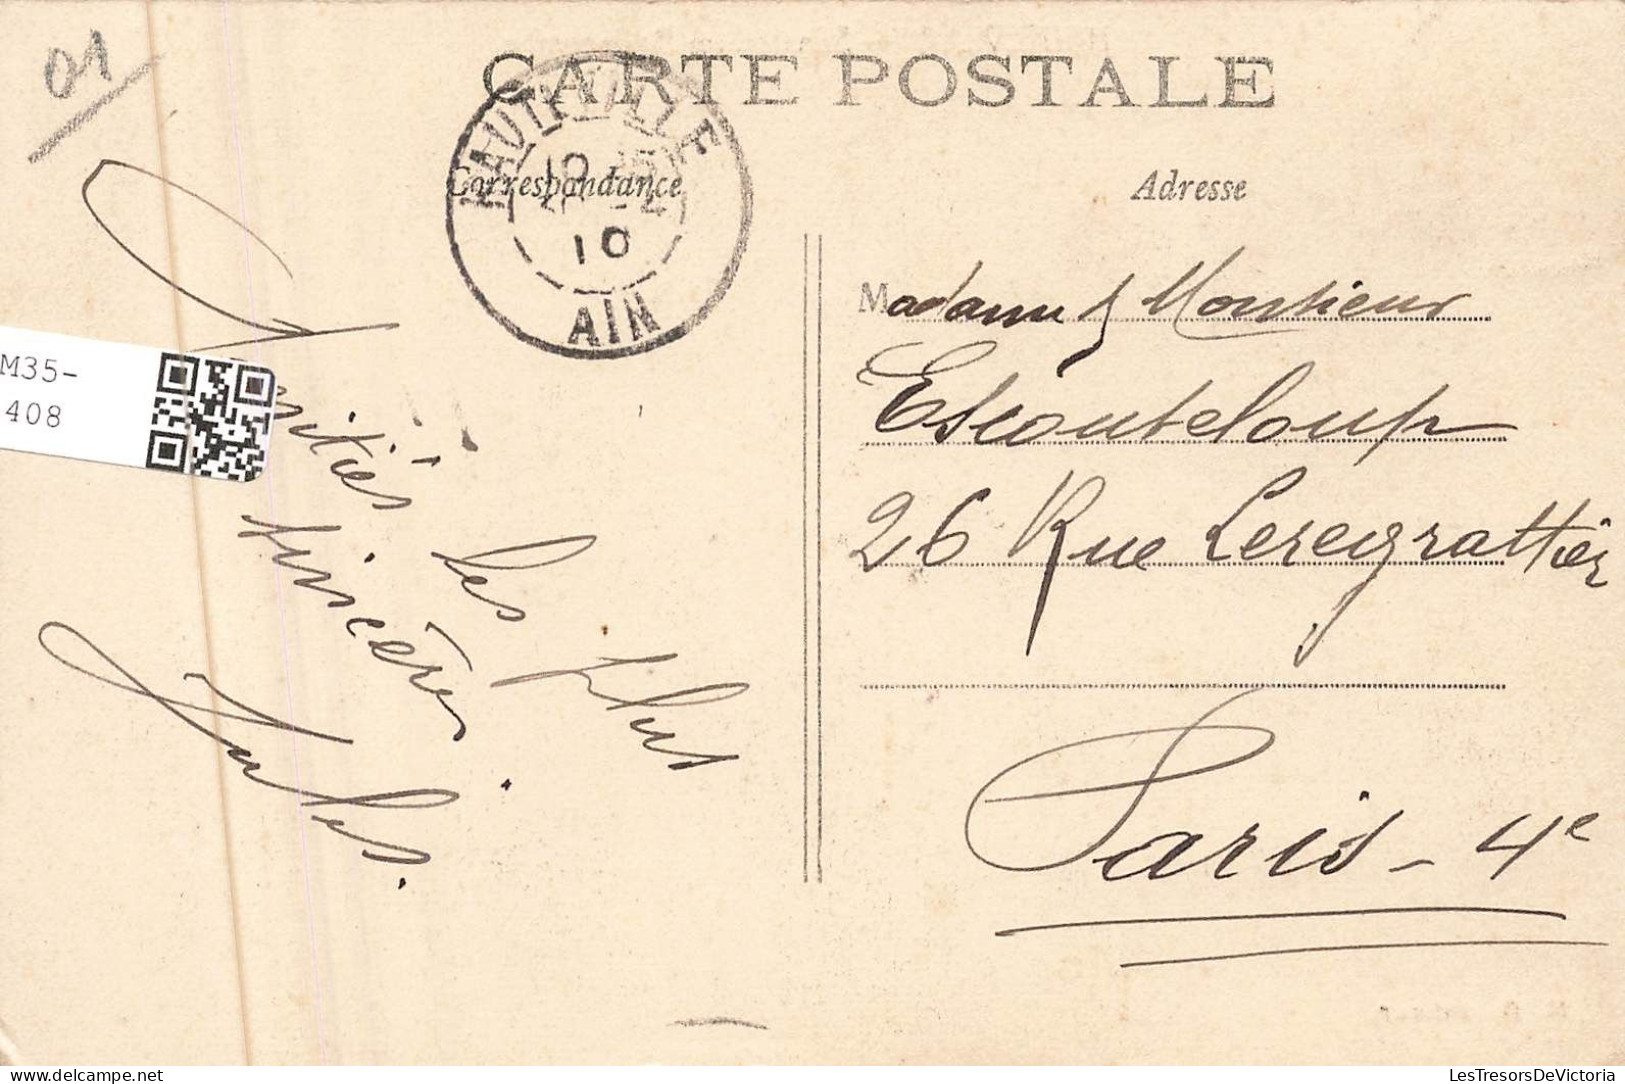 01
CARTE POSTALE
HAUTEVILLE
10
10
AIN
Correspondance
Adresse
M35-
408
Amitiés les plus
sincères.
Jules.
Madame & Monsieur
Escouteloup
26 Rue Leregrattier
Paris - 4e
LesTresorsDeVictoria